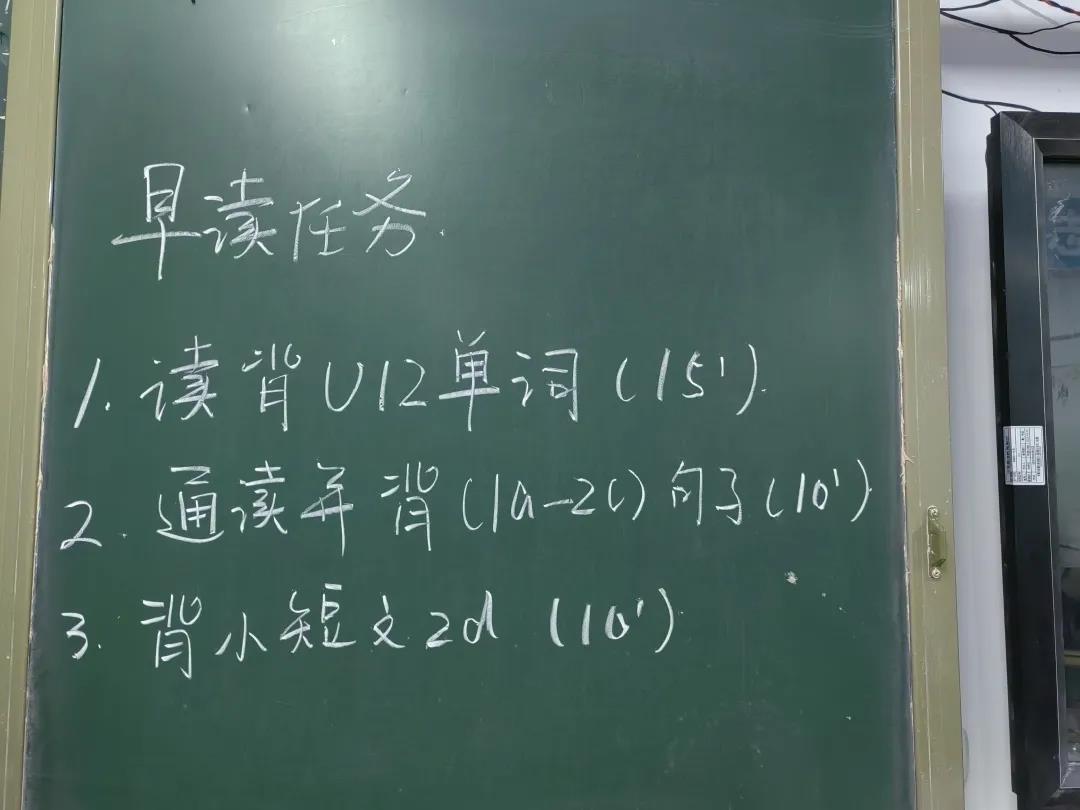 早读任务.
1. 读背U12单词(15').
2. 通读并背(1a-2c)句子(10')
3. 背小短文2d (10')